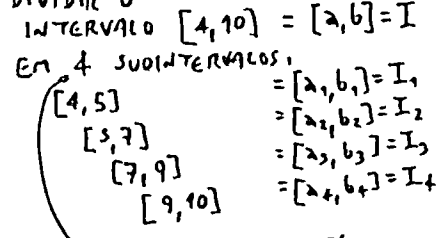 DIVIDIR O
INTERVALO [4,10] = [a,b]=I
EM 4 SUBINTERVALOS,
[4,5] =[a₁,b₁]=I₁
[5,7] =[a₂,b₂]=I₂
[7,9] =[a₃,b₃]=I₃
[9,10] =[a₄,b₄]=I₄